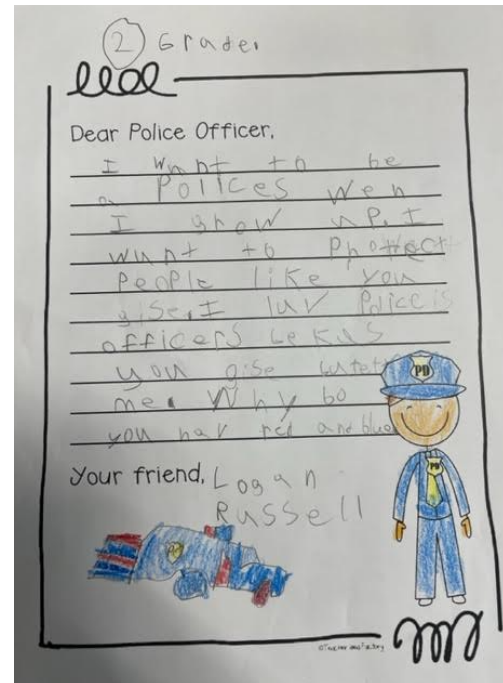 2 Grade.
Dear Police Officer,
I wunt to be
a Polices wen
I grow up. I
wunt to
People like you
gise. I luv Police is
officers bekus
you gise
me. Why bo
you hav red and blue
Your friend, Logan
Russell
PD
PD